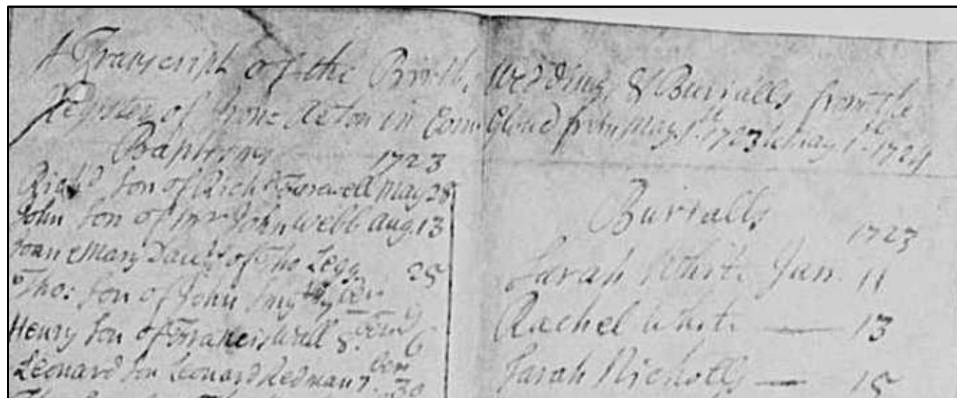 A Transcript of the Births, Wedding & Burialls from the
Register of Iron Acton in Com Glouc from May 1st 1723 to May 1st 1724
Baptisms 1723
Richd Son of Richd May 28
John Son of Mr John Webb Aug 13
Mary Daur of Tho Legg 25
Tho: Son of John
Henry Son of 6
Leonard Son Leonard Redman 30
Burialls 1723
Sarah White Jan 11
Rachel White — 13
Sarah Nicholls — 15